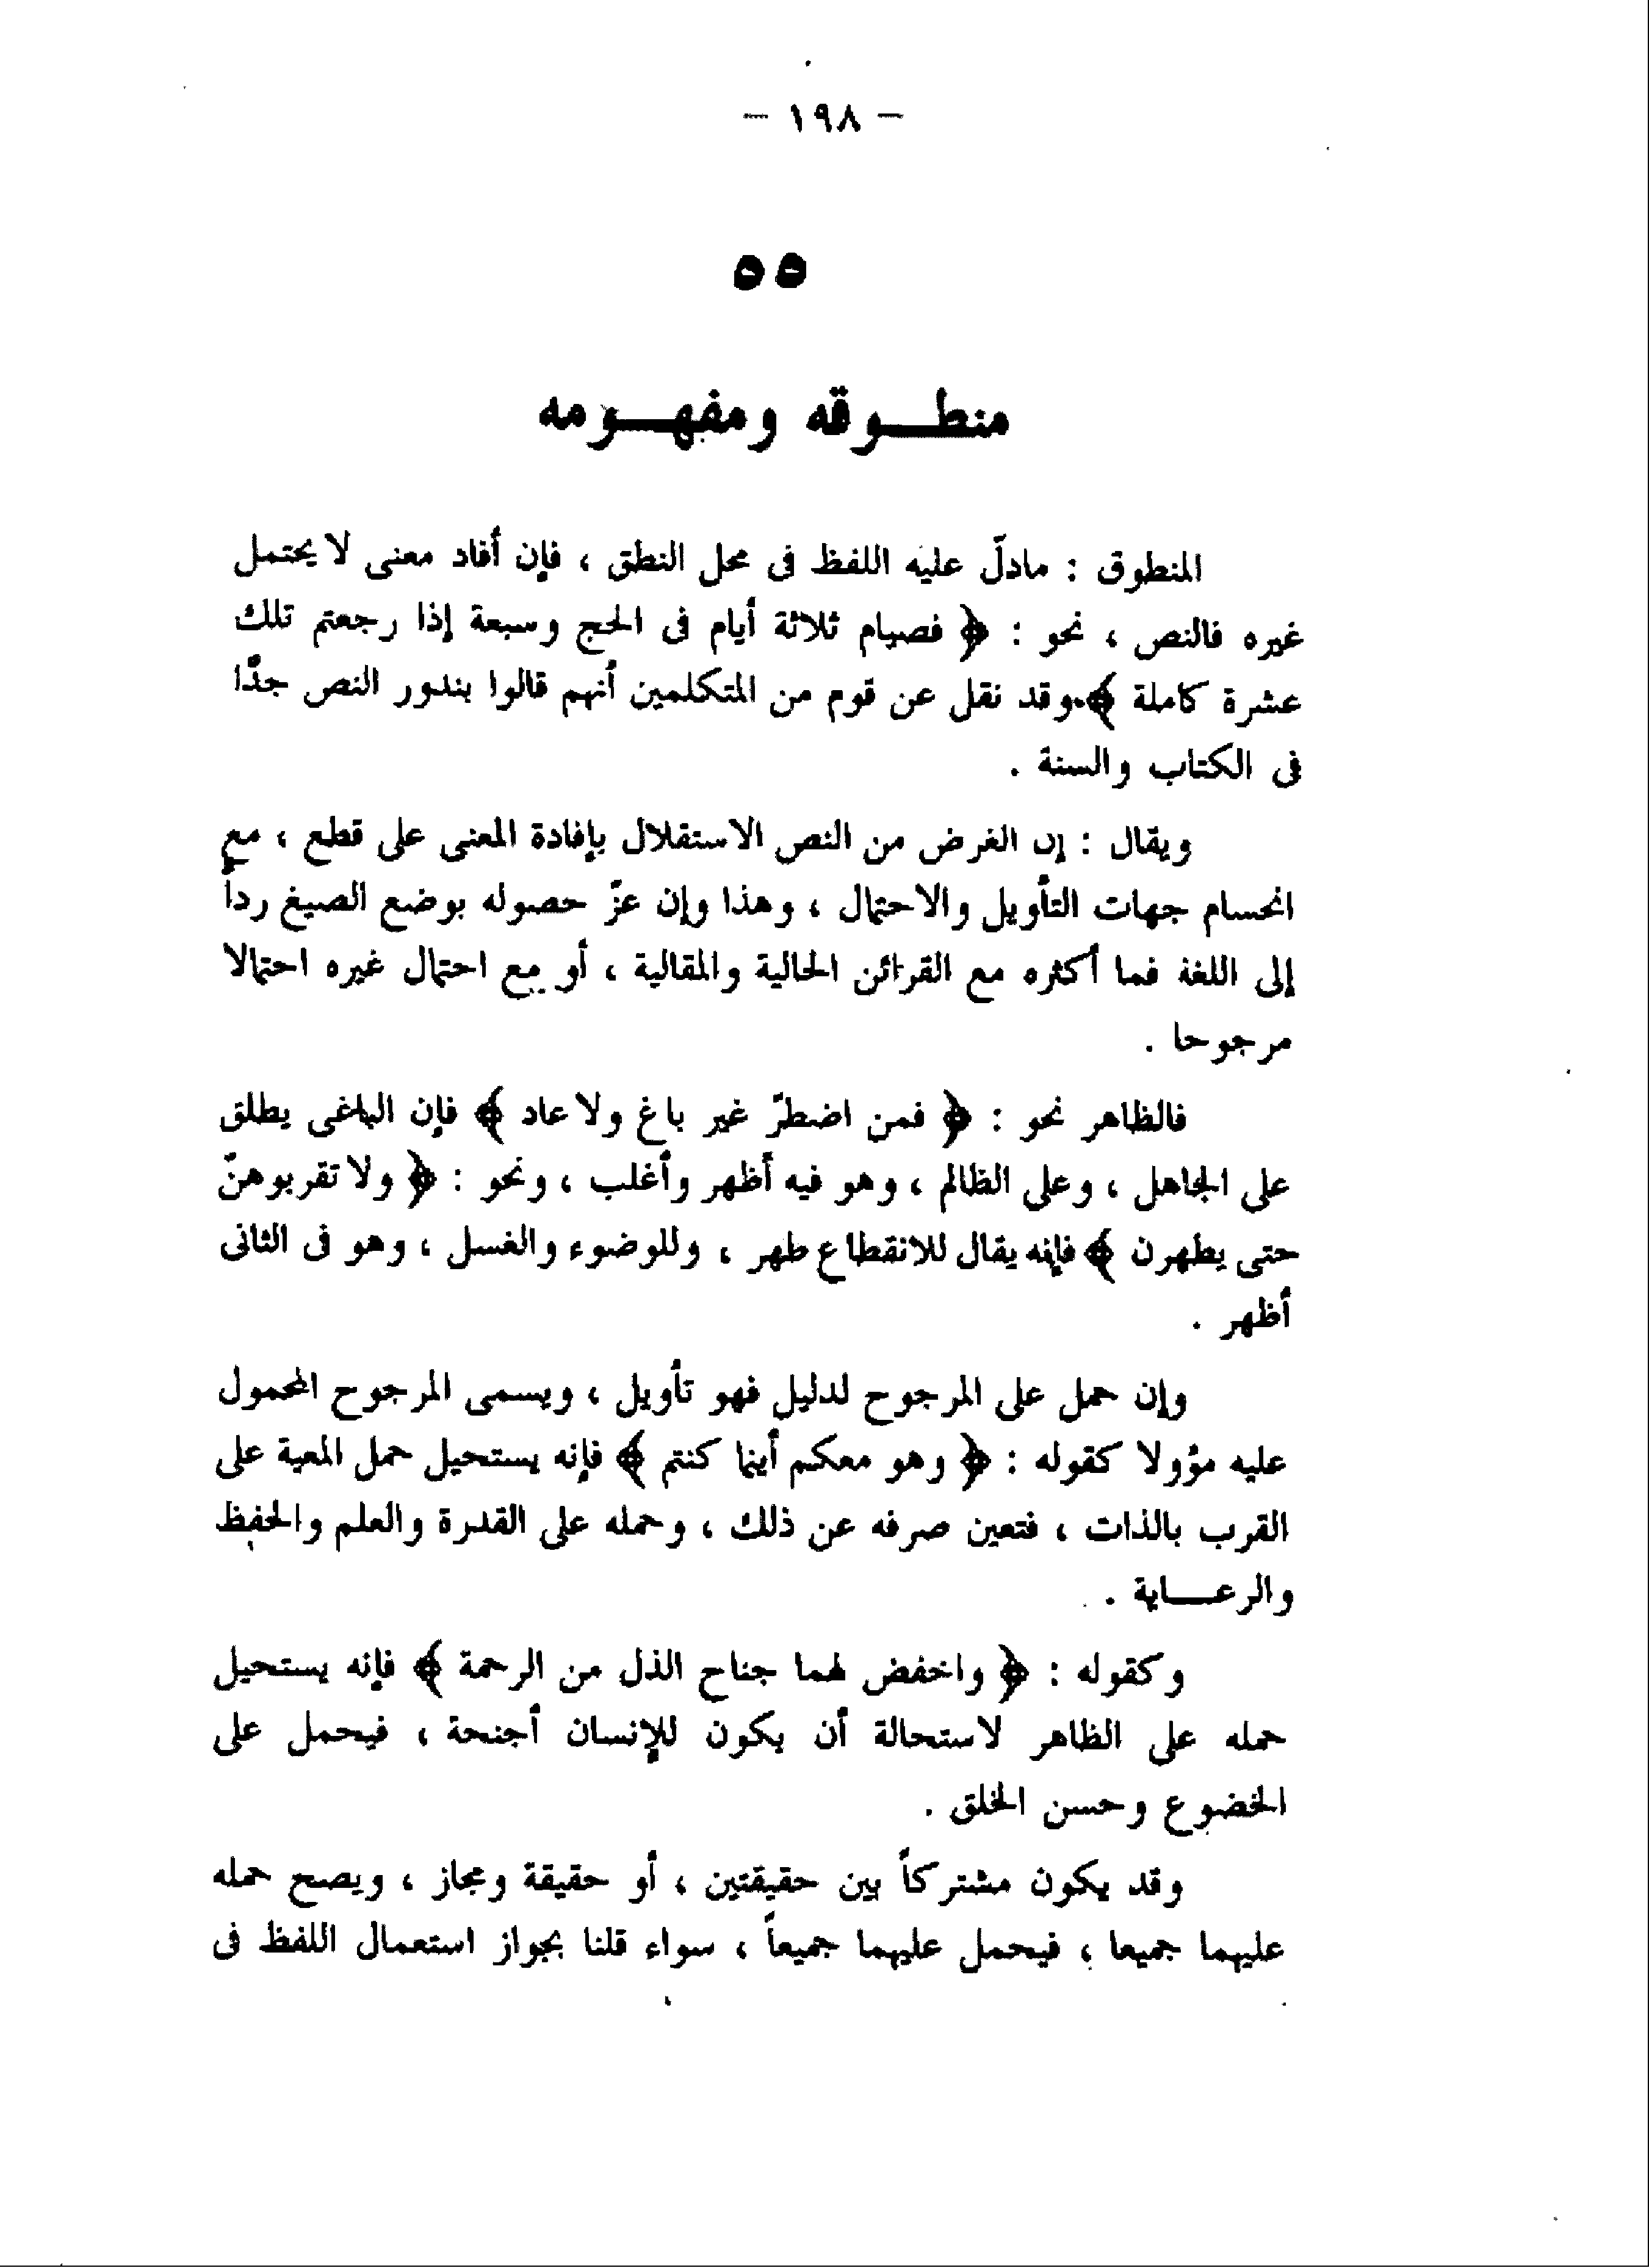 – ١٩٨ –
٥٥
منطوقه ومفهومه
المنطوق : مادلّ عليه اللفظ فى محل النطق ، فإن أفاد معنى لا يحتمل
غيره فالنص ، نحو : ﴿ فصيام ثلاثة أيام فى الحج وسبعة إذا رجعتم تلك
عشرة كاملة ﴾ وقد نقل عن قوم من المتكلمين أنهم قالوا بندور النص جدًّا
فى الكتاب والسنة .
ويقال : إن الغرض من النص الاستقلال بإفادة المعنى على قطع ، مع
انحسام جهات التأويل والاحتمال ، وهذا وإن عزّ حصوله بوضع الصيغ رداً
إلى اللغة فما أكثره مع القرائن الحالية والمقالية ، أو مع احتمال غيره احتمالا
مرجوحا .
فالظاهر نحو : ﴿ فمن اضطرّ غير باغ ولا عاد ﴾ فإن الباغى يطلق
على الجاهل ، وعلى الظالم ، وهو فيه أظهر وأغلب ، ونحو : ﴿ ولا تقربوهنّ
حتى يطهرن ﴾ فإنه يقال للانقطاع طهر ، وللوضوء والغسل ، وهو فى الثانى
أظهر .
وإن حمل على المرجوح لدليل فهو تأويل ، ويسمى المرجوح المحمول
عليه مؤولا كقوله : ﴿ وهو معكم أينما كنتم ﴾ فإنه يستحيل حمل المعية على
القرب بالذات ، فتعين صرفه عن ذلك ، وحمله على القدرة والعلم والحفظ
والرعاية .
وكقوله : ﴿ واخفض لهما جناح الذل من الرحمة ﴾ فإنه يستحيل
حمله على الظاهر لاستحالة أن يكون للإنسان أجنحة ، فيحمل على
الخضوع وحسن الخلق .
وقد يكون مشتركاً بين حقيقتين ، أو حقيقة ومجاز ، ويصح حمله
عليهما جميعا ، فيحمل عليهما جميعاً ، سواء قلنا بجواز استعمال اللفظ فى